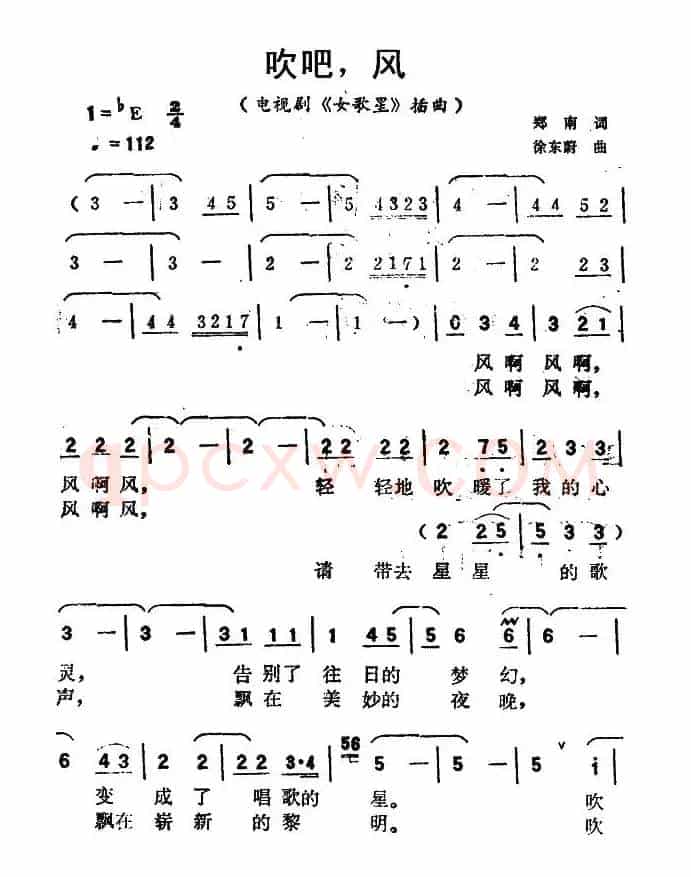 吹吧，风
（电视剧《女歌星》插曲）
1=♭E 2/4
♩=112
郑南 词
徐东蔚 曲
( 3 — | 3 4 5 | 5 — | 5 4323 | 4 — | 4 4 5 2 |
3 — | 3 — | 2 — | 2 2171 | 2 — | 2 2 3 |
4 — | 4 4 3217 | 1 — | 1 — ) | 0 3 4 | 3 2 1 |
风啊 风啊，
风啊 风啊，
2 2 2 | 2 — | 2 — | 2 2 2 2 | 2 7 5 | 2 3 3 |
风啊风， 轻 轻地 吹 暖了 我的心
风啊风，
( 2 2 5 | 5 3 3 )
请 带去 星星 的歌
3 — | 3 — | 3 1 1 1 | 1 4 5 | 5 6 6 | 6 — |
灵， 告别了 往日的 梦幻，
声， 飘在 美妙的 夜晚，
6 4 3 | 2 2 | 2 2 3·4 | 56 5 5 | 5 — | 5 ∨ i |
变 成了 唱歌的 星。 吹
飘在 崭新 的黎 明。 吹
qpcxw.COM